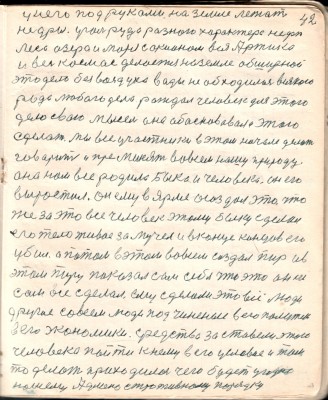 у него под руками, на земле лежат 42
недры. угол руда разного характера недр
лесь озера и моря с океаном вся Арктика
и весь космас делается на земле обширной
это дело без воздуха вады не обходилось всякого
рода любого дела рождал человек для этого
дело своего мысел она обасновывала этого
сделат. мы все участники в этом начали делат
говорить и применят вовсем нашу природу
она нам все родила быка и человека. он его
вырастил. он ему в ярме создал это что
же за это все человек этому быку сделал
его тело живое замучел и в конце концов его
убил. а потом в этом вовсем создал пир и в
этом пиру показал сам себя то это он им
сам все сделал. ему сделали это все люди
другое совсем люди подчиненые его политик
его экономики. средства заставели этого
человека пойти к нему в его целовое и там
то делат приходилос чего будет угодно
нашему Административному порядку